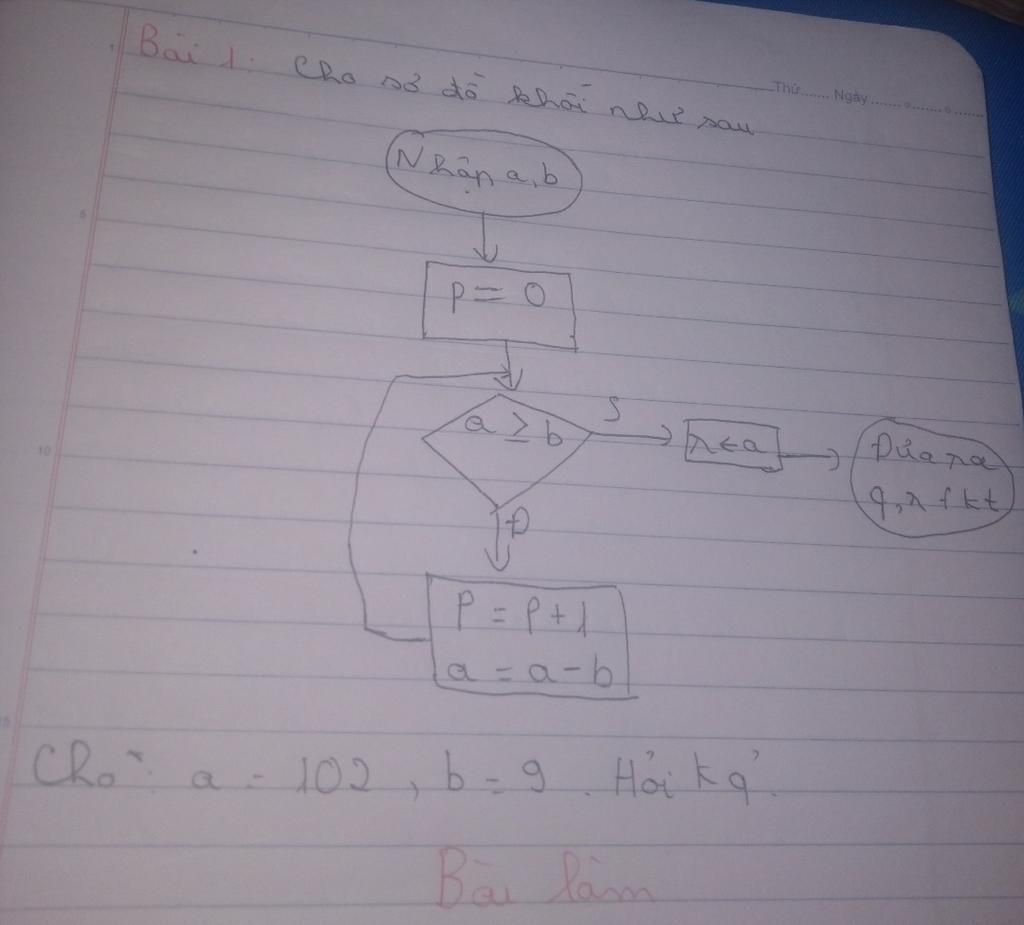 Thứ....... Ngày....... o....... o.......
Bài 1. Cho sơ đồ khối như sau
Nhập a, b
p = 0
a ≥ b
S
r ← a
Đưa ra
q, r & kt
Đ
P = P + 1
a = a - b
Cho: a = 102, b = 9. Hỏi kq?
Bài làm
5
10
15